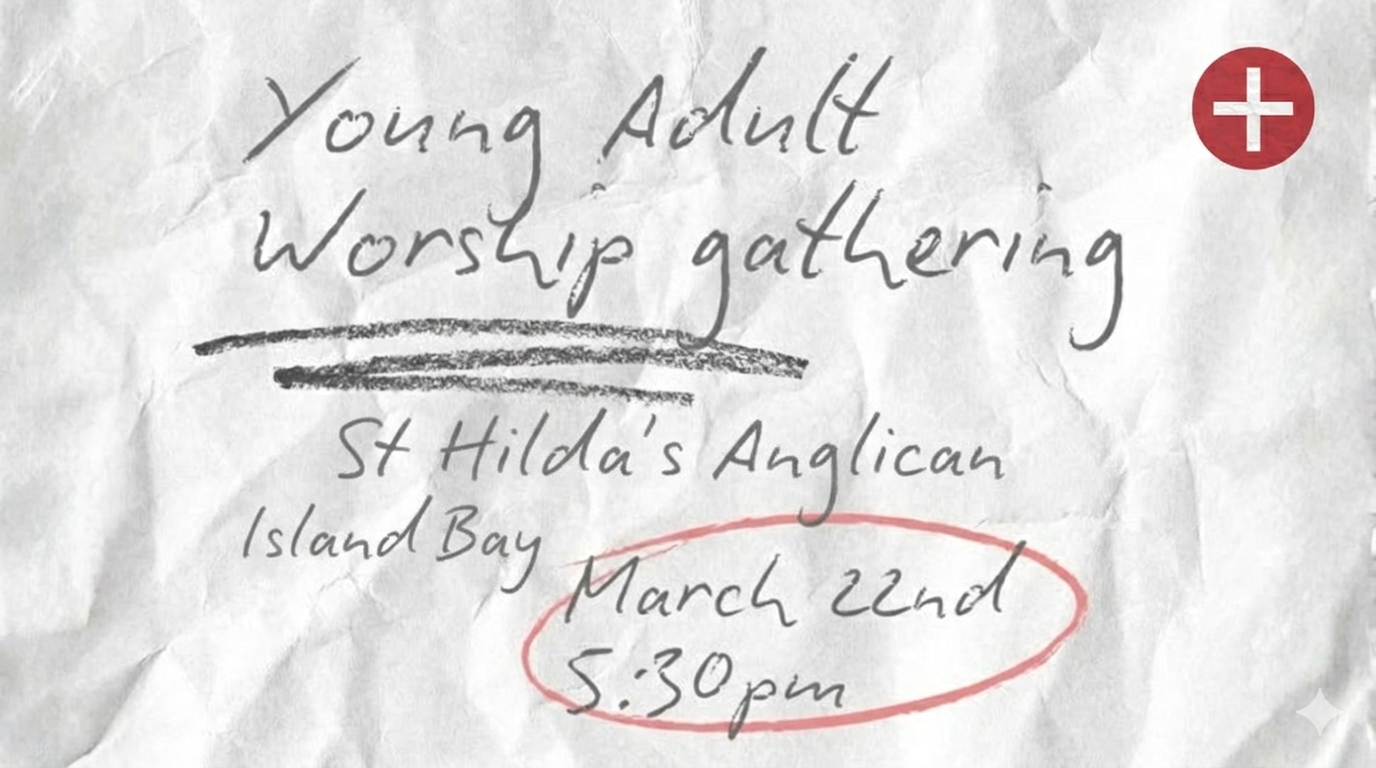 Young Adult
Worship gathering
St Hilda's Anglican
Island Bay
March 22nd
5:30pm